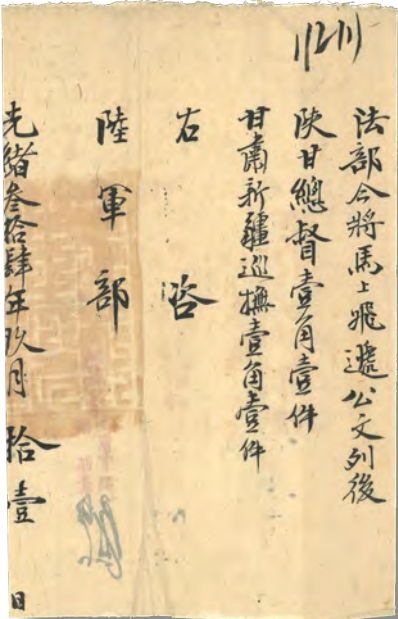 法部今將馬上飛遞公文列後
陝甘總督壹角壹件
甘肅新疆巡撫壹角壹件
右咨
陸軍部
光緒叁拾肆年玖月拾壹日